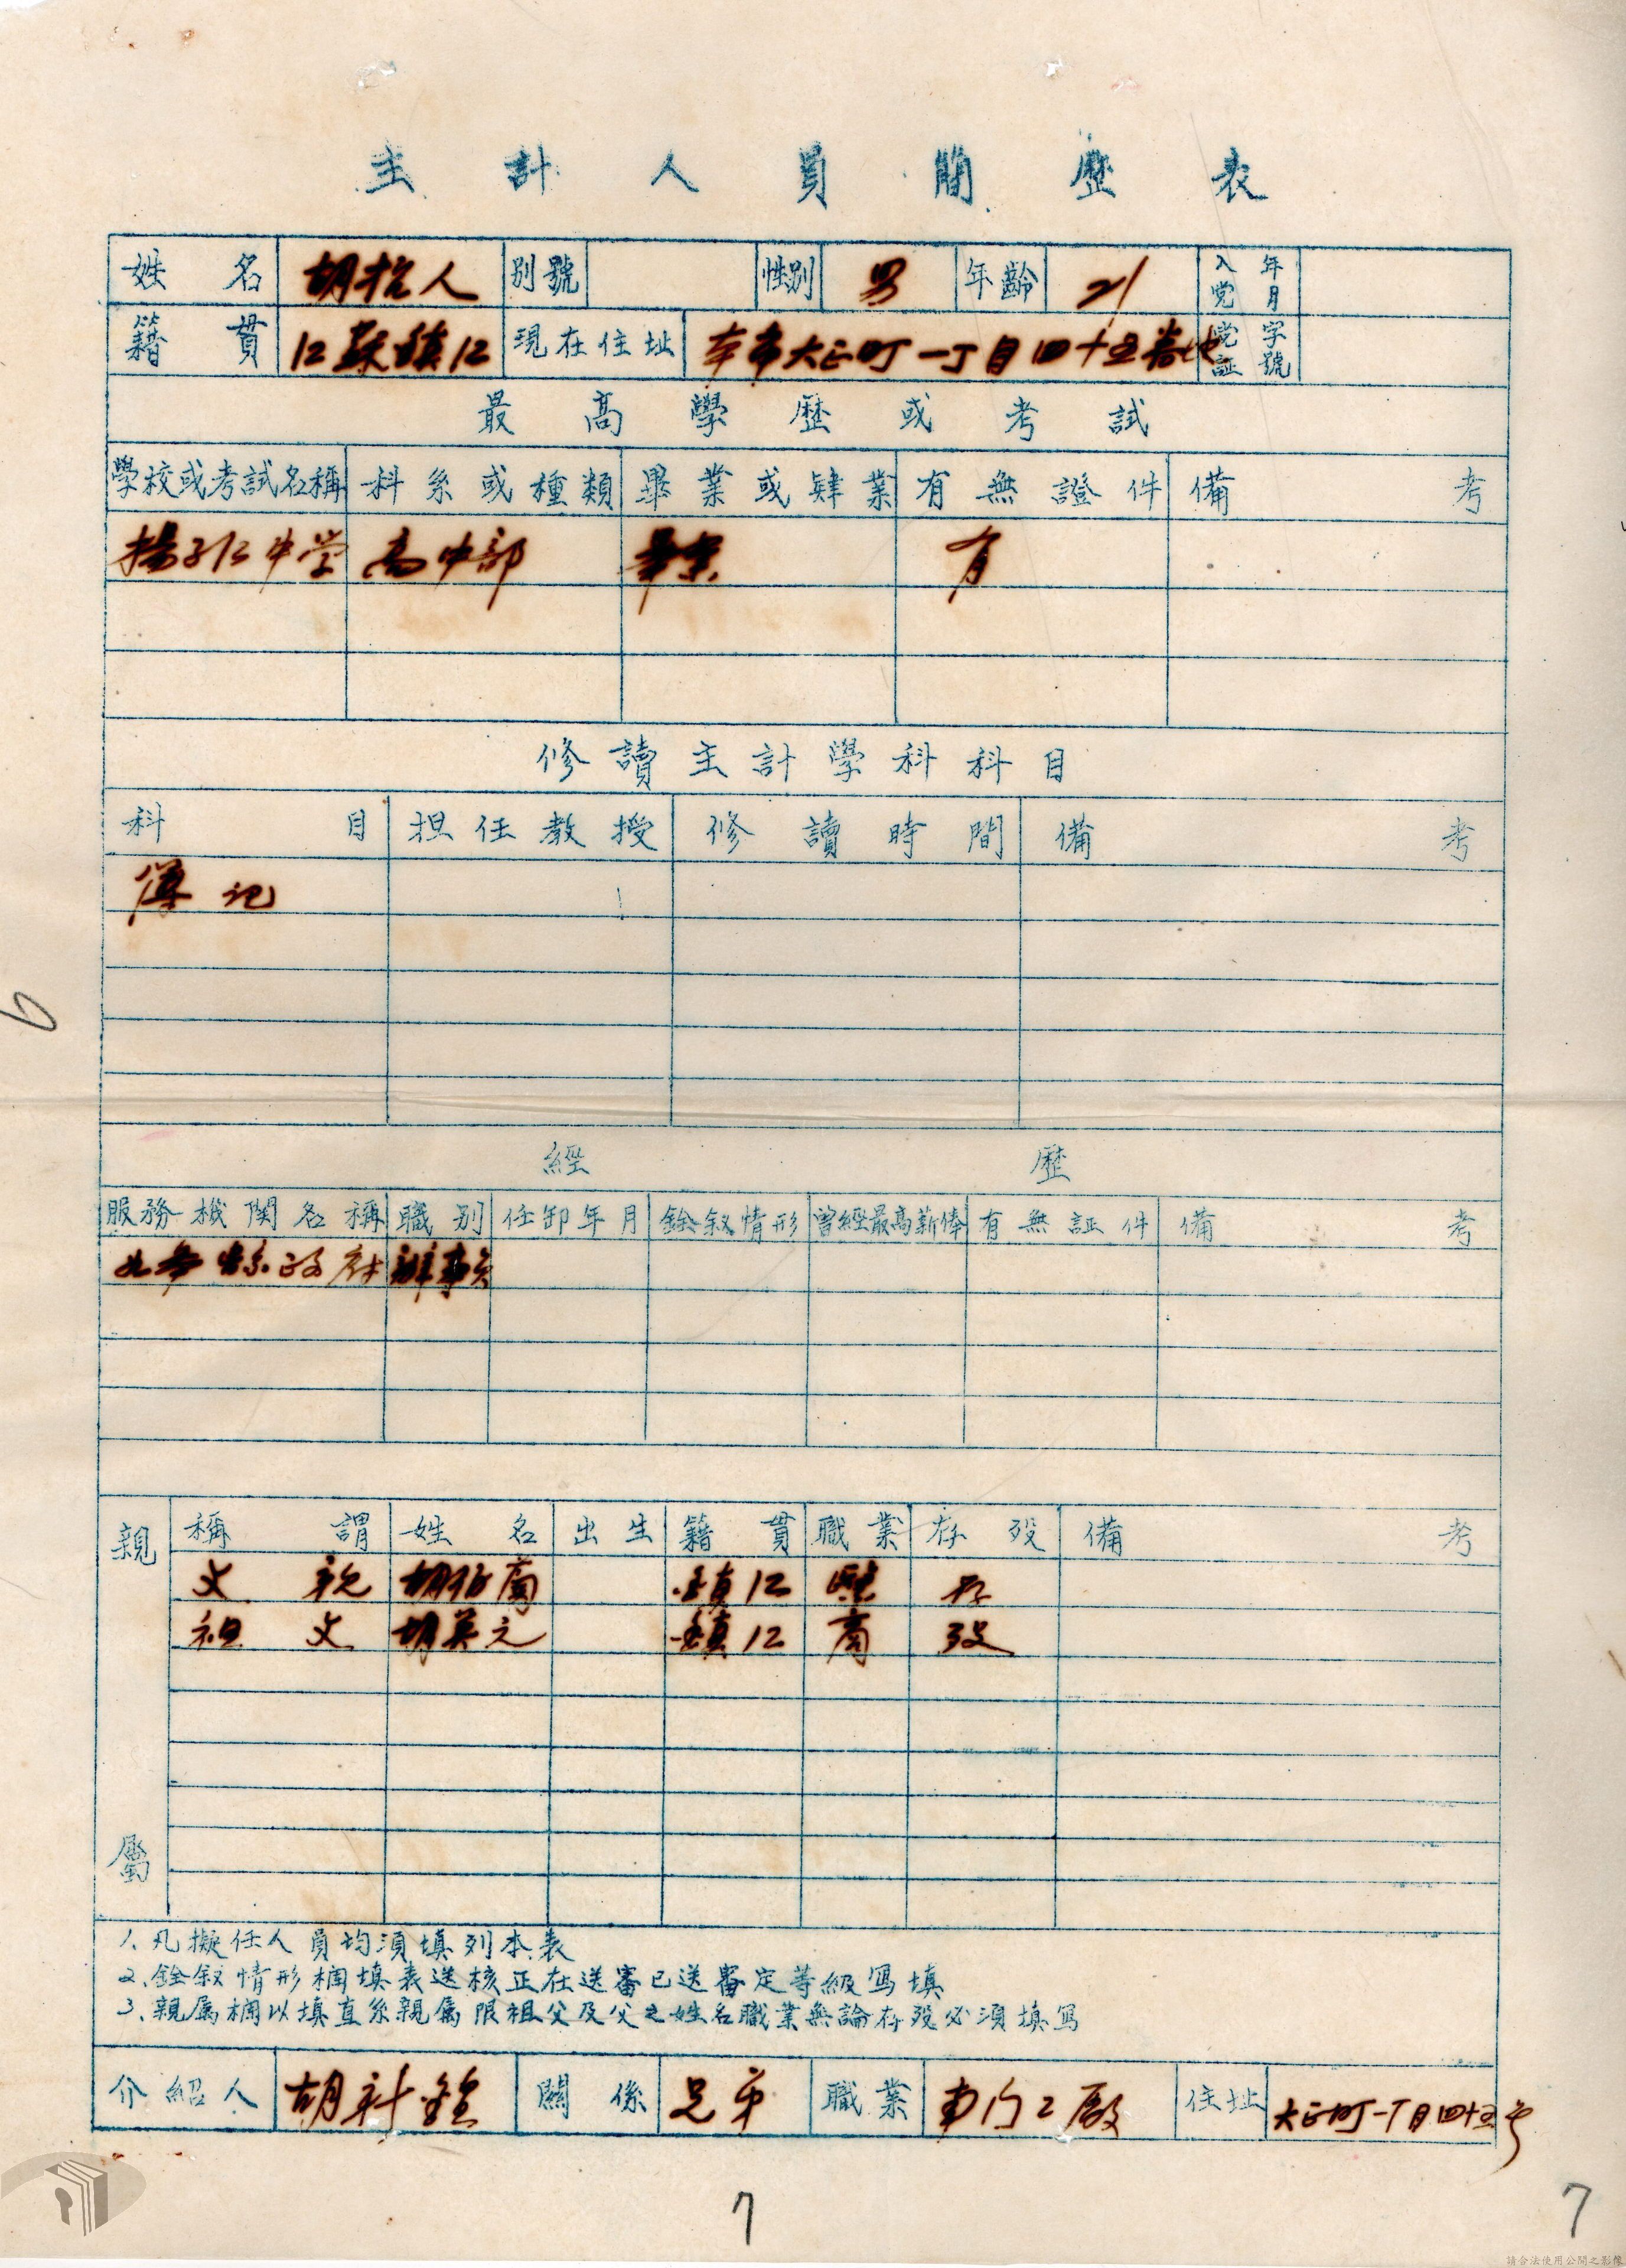 主計人員簡歷表
姓名 胡 人 別號 性別 男 年齡 21 入党年月
籍貫 江蘇鎮江 現在住址 本市大正町一丁目四十五番地 党証字號
最高學歷或考試
學校或考試名稱 科系或種類 畢業或肄業 有無證件 備考
揚子江中学 高中部 畢業 有
修讀主計學科科目
科目 担任教授 修讀時間 備考
簿記
經歷
服務機関名稱 職别 任卸年月 銓叙情形 曾經最高薪俸 有無証件 備考
縣政府 辦事員
親屬 稱謂 姓名 出生 籍貫 職業 存歿 備考
父親 胡伯 鎮江 醫 存
祖父 胡英元 鎮江 商 歿
1、凡擬任人員均須填列本表
2、銓叙情形欄填表送核正在送審已送審定等級寫填
3、親属欄以填直系親属限祖父及父之姓名職業無論存歿必須填寫
介紹人 胡 關係 兄弟 職業 東門工廠 住址 大正町一丁目四十五号
6
7
7
請合法使用公開之影像